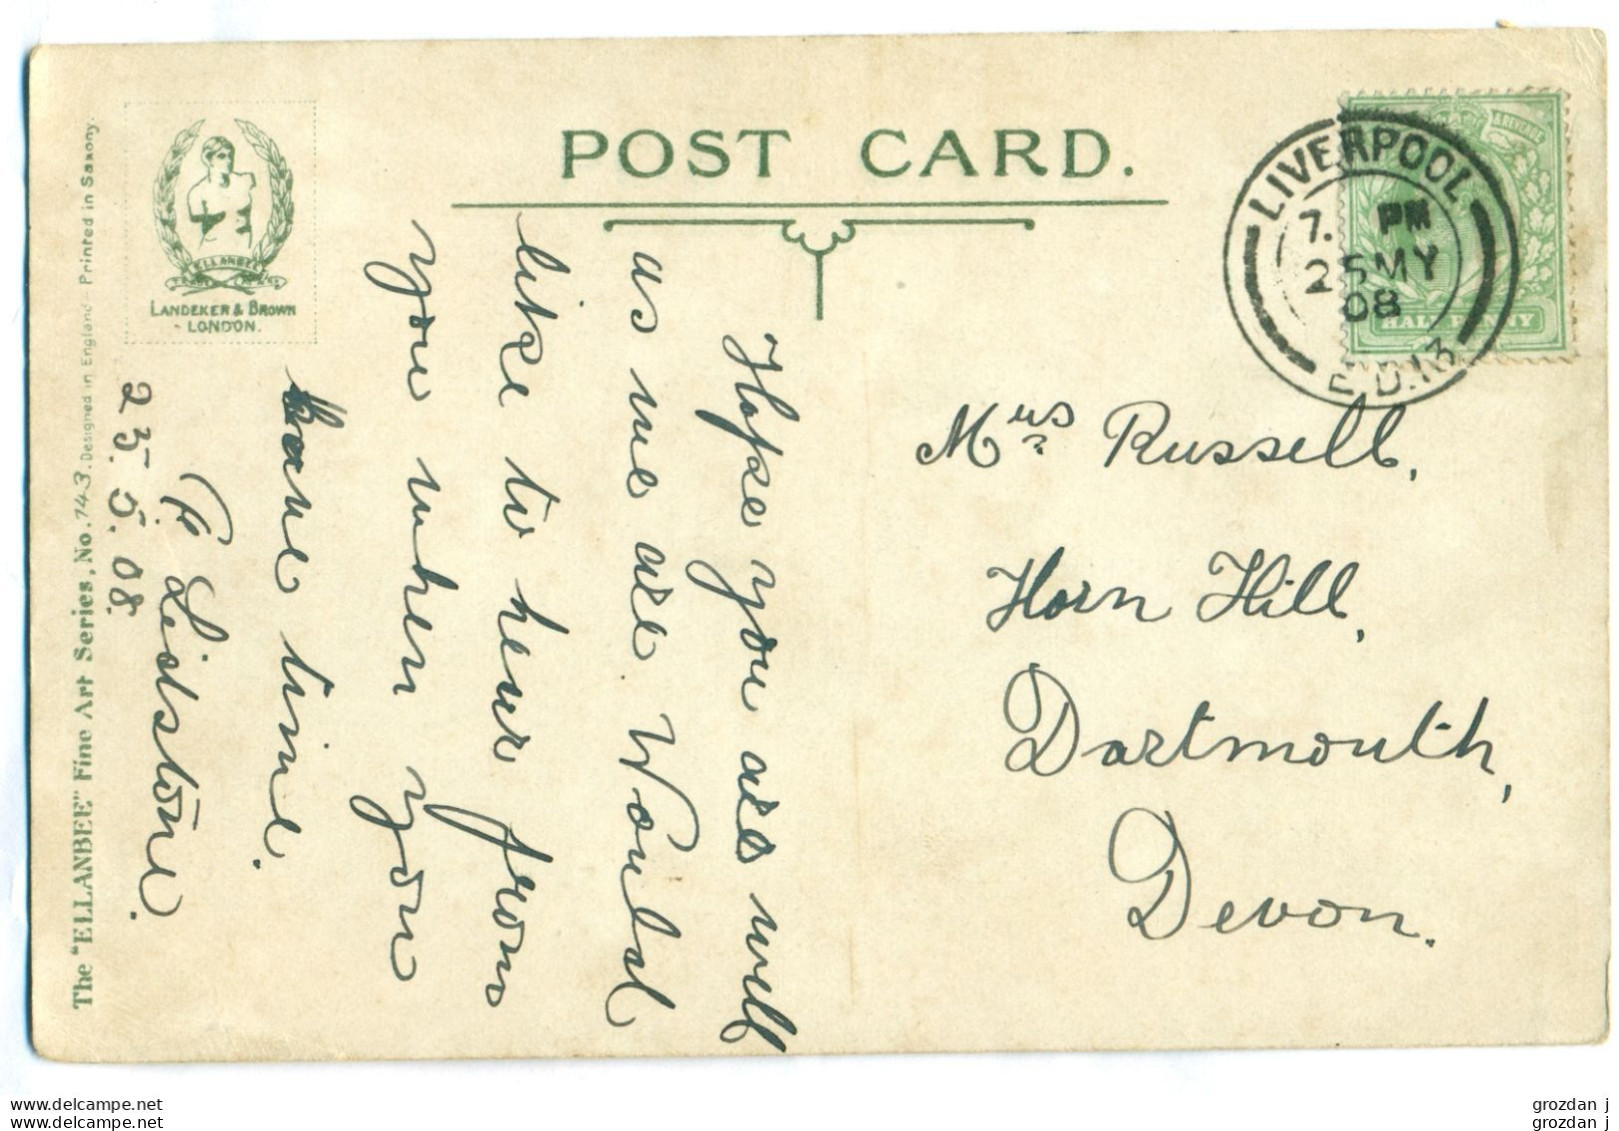 POST CARD.
The "ELLANBEE" Fine Art Series, No. 743. Designed in England - Printed in Saxony.
ELLANBEE
LANDEKER & BROWN
- LONDON.
LIVERPOOL
7. PM
25 MY
08
E.D.13
REVENUE
HALFPENNY
Mrs Russell,
Horn Hill,
Dartmouth,
Devon.
Hope you are well
as me are. Would
like to hear from
you when you
have time.
Lidstone.
25.5.08.
www.delcampe.net
www.delcampe.net
grozdan j
grozdan j